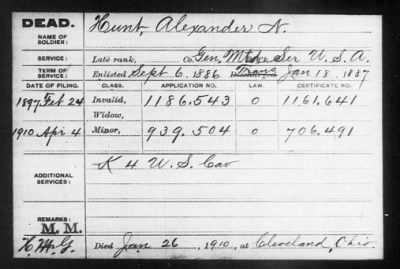 DEAD.
NAME OF SOLDIER:
Hunt, Alexander N.
SERVICE:
Late rank, Co. Gen. Mtd Ser U.S.A.
TERM OF SERVICE:
Enlisted Sept 6, 1886 Jan 18, 1887
DATE OF FILING. CLASS. APPLICATION NO. LAW. CERTIFICATE NO.
1897 Feb 24 Invalid, 1186.543 0 1161.641
Widow,
1910 Apr 4 Minor, 939.504 0 706.491
ADDITIONAL SERVICES:
K 4 U.S. Cav
REMARKS:
M. M.
Died Jan 26, 1910, at Cleveland, Ohio.